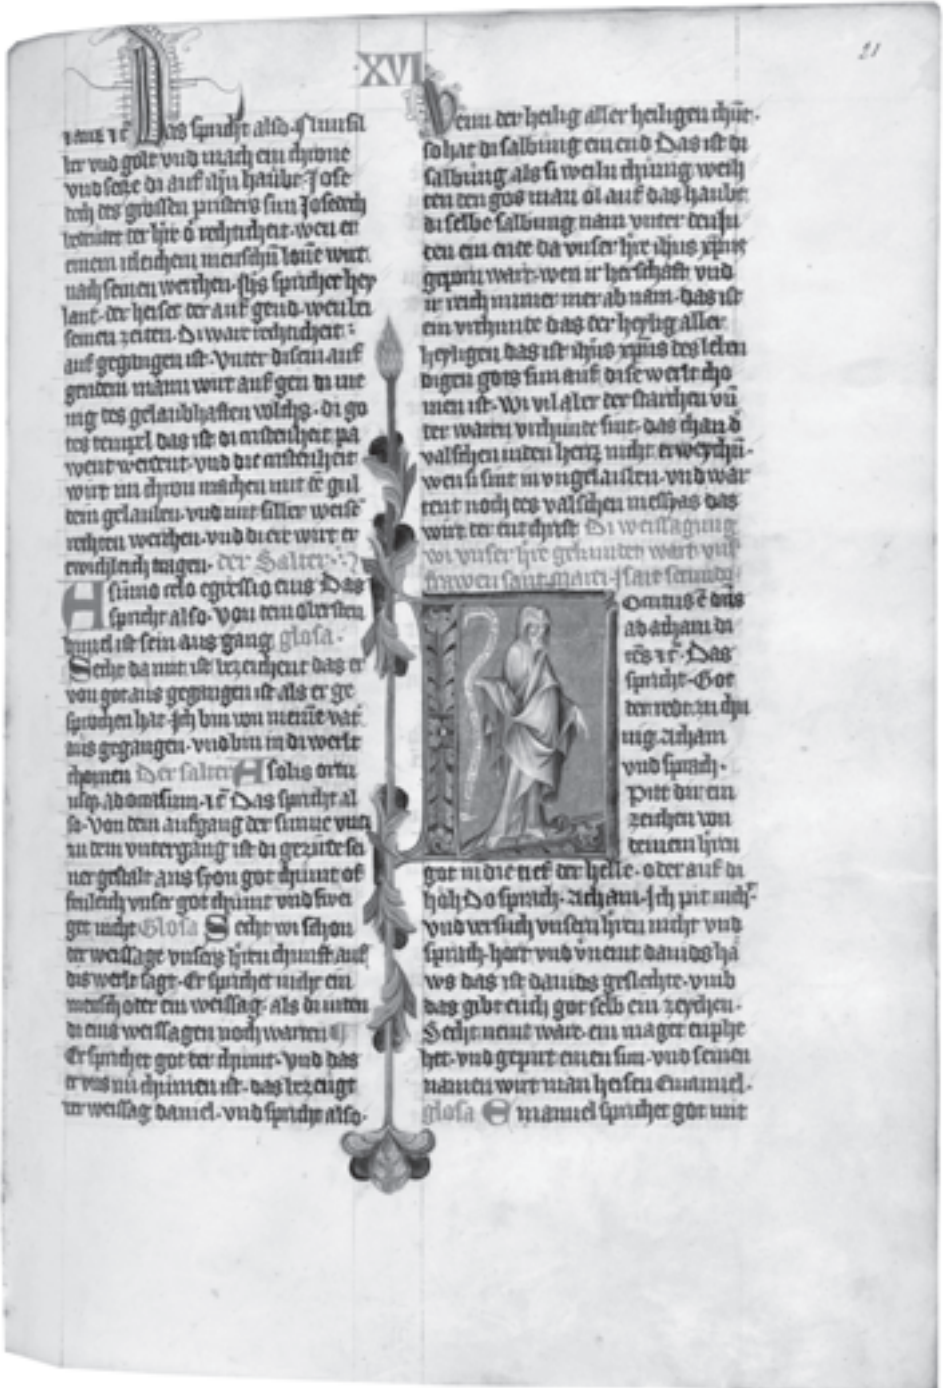 XVI
21
Das spricht also. Nim sil
ber vnd golt vnd mach ein chrone
vnd secze di auf ihm haubt Jose
dech des grossen pristers sun Josedech
bedeutet der hre d rechticheit wen er
einem itleichem menschn lone wirt
nach seinen werchen. ihs spricht hey
lant. der heiset der auf gend. wen bei
seinen zeiten. Di ware rechticheit
auf gegangen ist. Vnter disem auf
gendem mann wirt auf gen di me
nig des gelaubhaften volchs. di go
tes tempel das ist di cristenheit pa
went werdent. vnd die cristenheit
wirt im chron machen mit de gul
dein gelauben. vnd mit silber weise
rechten werchen. vnd di ere wirt er
ewichleich tragen. der Salter
A sumo celo egressio eius Das
spricht also. von dem obersten
himel ist sein aus gang glosa.
Secht da mit ist bezeichent das er
von got aus gegangen ist als er ge
sprochen hat. Ich bin von meine vat
aus gegangen. vnd bin in di werlt
chomen Der salter A solis ortu
usqz ad occasum. ec Das spricht al
so. Von dem aufgang der sunne vncz
zu dem vntergang ist di gezirde sei
ner gestalt aus syon got chumt of
fenleich vnser got chumt vnd swei
get nicht Glosa Secht wi schon
der weissage vnsers hren chunft auf
dis werlt sagt. Er sprichet nicht ein
mensch oder ein weissag. als di iuden
di eins weissagen noch warten
Er sprichet got der chumt. vnd das
er vns nu chumen ist. das bezeugt
der weissag daniel. vnd spricht also.
Wenn der heilig aller heiligen chumt.
so hat di salbung ein end Das ist di
salbung als si weiln chunig weih
ten den gos man ol auf das haubt
di selbe salbung nam vnter den Ju
den ein ende da vnser hre ihus xpus
geporn wart. wen ir herschaft vnd
ir reich immer mer ab nam. das ist
ein vrchunde das der heylig aller
heyligen das ist ihus xpus des leben
digen gots sun auf dise werlt cho
men ist. Wi vil aber der starchen vn
der waren vrchunde sint. das chan d
valschen iuden hercz nicht erweychn.
wen si sint in vngelauben. vnd war
tent noch des valschen messyas das
wirt der entchrist Di weissagung
wi vnser hre gekundet wart vns
frawen sant marei. Isaie secundo.
Locutus e dns
ad acham di
cens ec. Das
spricht. Got
der redt zu chu
nig Acham
vnd sprach.
Pitt dir ein
zeichen von
deinem hren
got in die tief der helle. oder auf di
hoh Do sprach. Acham. Ich pit nicht
vnd versuch vnsern hren nicht vnd
sprach. hort vnd vnemt dauids ha
ws das ist dauids geslechte. vmb
das gibt euch got selb ein zeychen.
Secht nemt war. ein maget enphe
het. vnd gepirt einen sun. vnd seinen
namen wirt man heisen Emanuel.
glosa Emanuel sprichet got mit